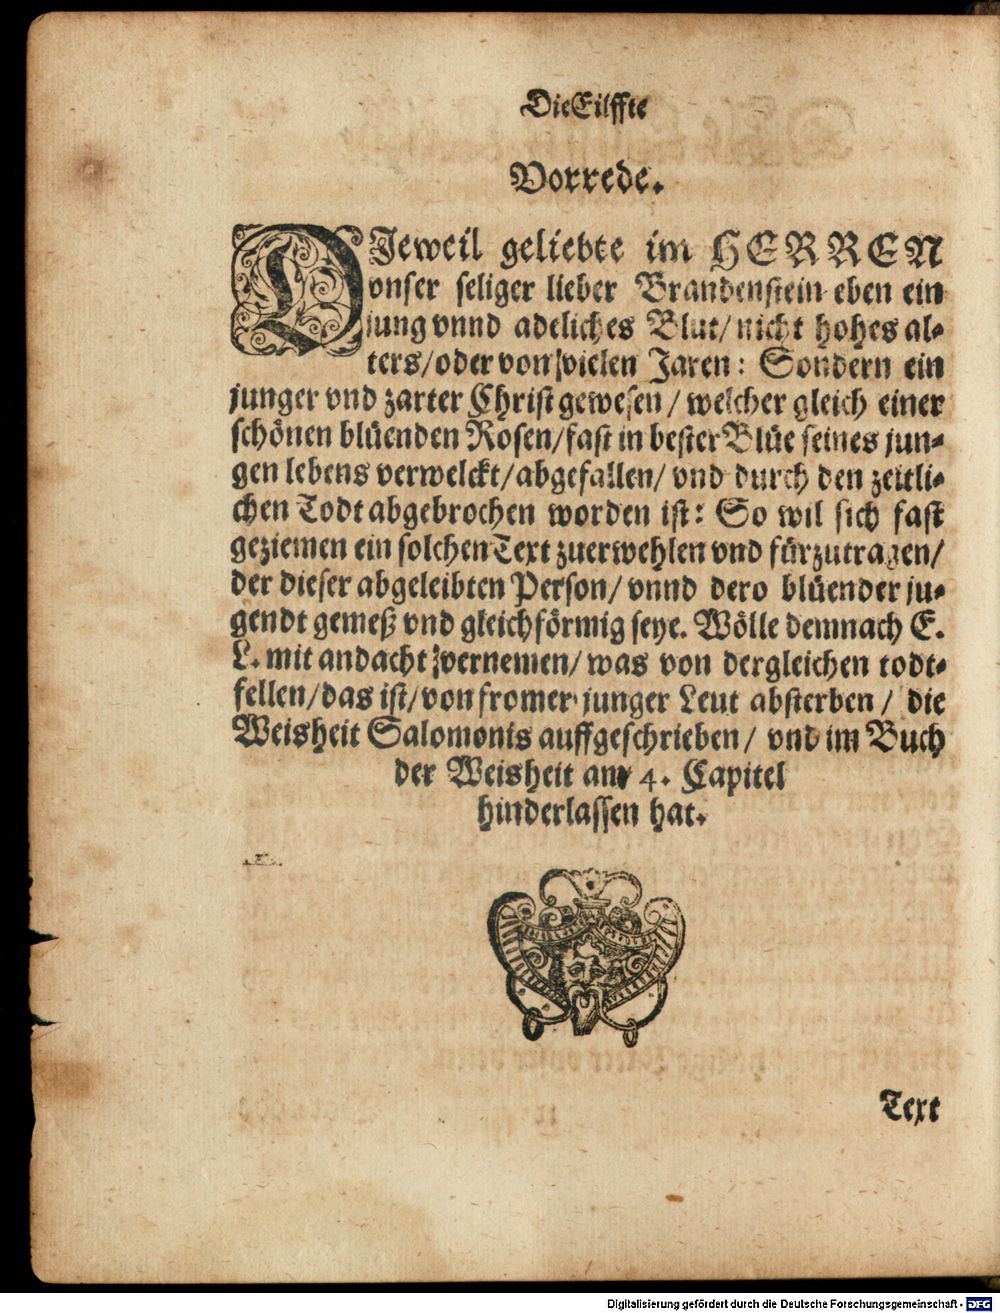 Die Eilffte
Vorrede.
DJeweil geliebte im HERREN
vnser seliger lieber Brandenstein eben ein
jung vnnd adeliches Blut/ nicht hohes al-
ters/ oder von vielen Jaren: Sondern ein
junger vnd zarter Christ gewesen/ welcher gleich einer
schönen blüenden Rosen/ fast in bester Blüe seines jun-
gen lebens verwelckt/ abgefallen/ vnd durch den zeitli-
chen Todt abgebrochen worden ist: So wil sich fast
geziemen ein solchen Text zuerwehlen vnd fürzutragen/
der dieser abgeleibten Person/ vnnd dero blüender ju-
gendt gemeß vnd gleichförmig seye. Wölle demnach E.
L. mit andacht vernemen/ was von dergleichen todt-
fellen/ das ist/ von fromer junger Leut absterben/ die
Weisheit Salomonis auffgeschrieben/ vnd im Buch
der Weisheit am 4. Capitel
hinderlassen hat.
Text
Digitalisierung gefördert durch die Deutsche Forschungsgemeinschaft - DFG